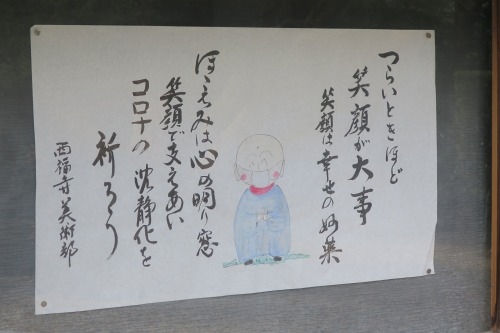 つらいときほど
笑顔が大事
笑顔は幸せの妙薬
ほゝえみは心の明り窓
笑顔で支えあい
コロナの沈静化を
祈ろう
西福寺美術部